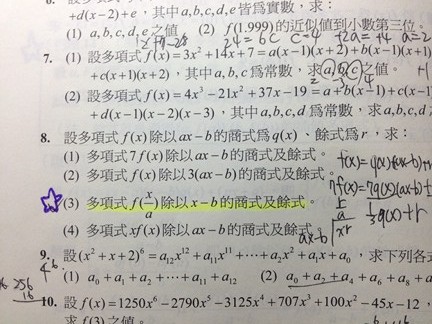 +d(x−2)+e，其中a,b,c,d,e皆為實數，求：
(1) a,b,c,d,e之值 (2) f(1.999)的近似值到小數第三位。
7. (1) 設多項式f(x)=3x²+14x+7=a(x−1)(x+2)+b(x−1)(x+1)
+c(x+1)(x+2)，其中a,b,c為常數，求a,b,c之值。
(2) 設多項式f(x)=4x³−21x²+37x−19=a+b(x−1)+c(x−1)
+d(x−1)(x−2)(x−3)，其中a,b,c,d為常數，求a,b,c,d
8. 設多項式f(x)除以ax−b的商式為q(x)、餘式為r，求：
(1) 多項式7f(x)除以ax−b的商式及餘式。
(2) 多項式f(x)除以3(ax−b)的商式及餘式。
7f(x)=7q(x)(ax-b)
(3) 多項式f(x/a)除以x−b的商式及餘式。
1/3 q(x)+r
(4) 多項式xf(x)除以ax−b的商式及餘式。
ax-b
xr
9. 設(x²+x+2)⁶=a₁₂x¹²+a₁₁x¹¹+⋯+a₂x²+a₁x+a₀，求下列各
(1) a₀+a₁+a₂+⋯+a₁₁+a₁₂ (2) a₀+a₂+a₄+a₆+a₈+a
256
16
10. 設f(x)=1250x⁶−2790x⁵−3125x⁴+707x³+100x²−45x−12，
求f(3)之值。